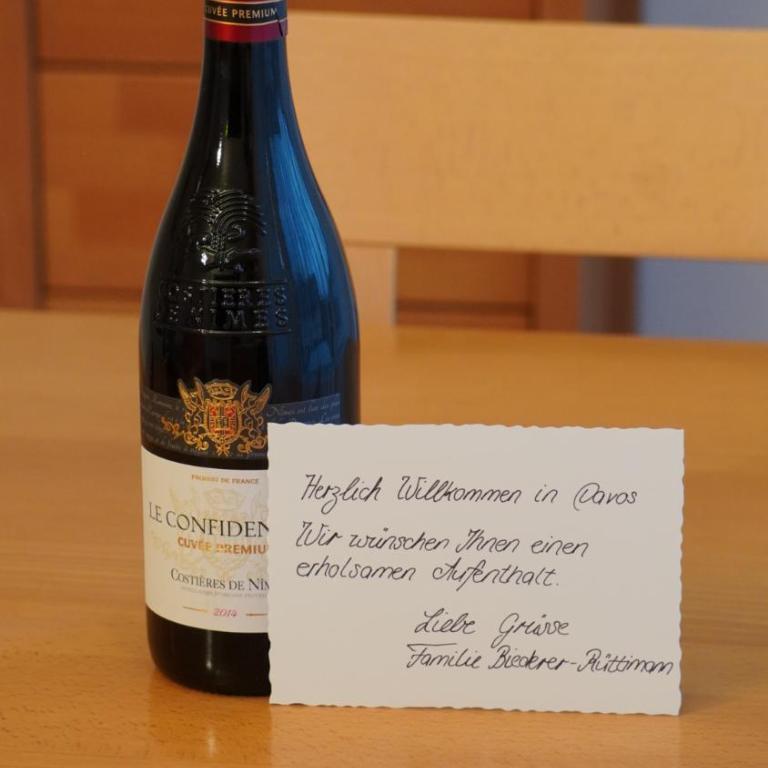 CUVÉE PREMIUM
COSTIÈRES
DE NIMES
PRODUIT DE FRANCE
LE CONFIDEN
CUVÉE PREMIU
COSTIÈRES DE NÎM
2014
Herzlich Willkommen in Davos
Wir wünschen Ihnen einen
erholsamen Aufenthalt.
Liebe Grüsse
Familie Biederer-Rüttimann